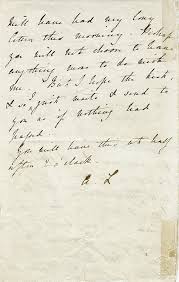 will have had my long
letter this morning. Perhaps
you will not choose to have
anything more to do with
me. But I hope the best,
& so just write & send to
you as if nothing had
passed.
You will have this at half
after 2 o'clock.
A L